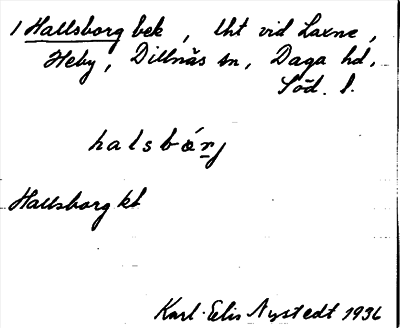 1 Hallsborg bek, tht vid Laxne,
Heby, Dillnäs sn, Daga hd,
Söd. l.
halsbórj
Hallsborg kb
Karl-Elis Nystedt 1936